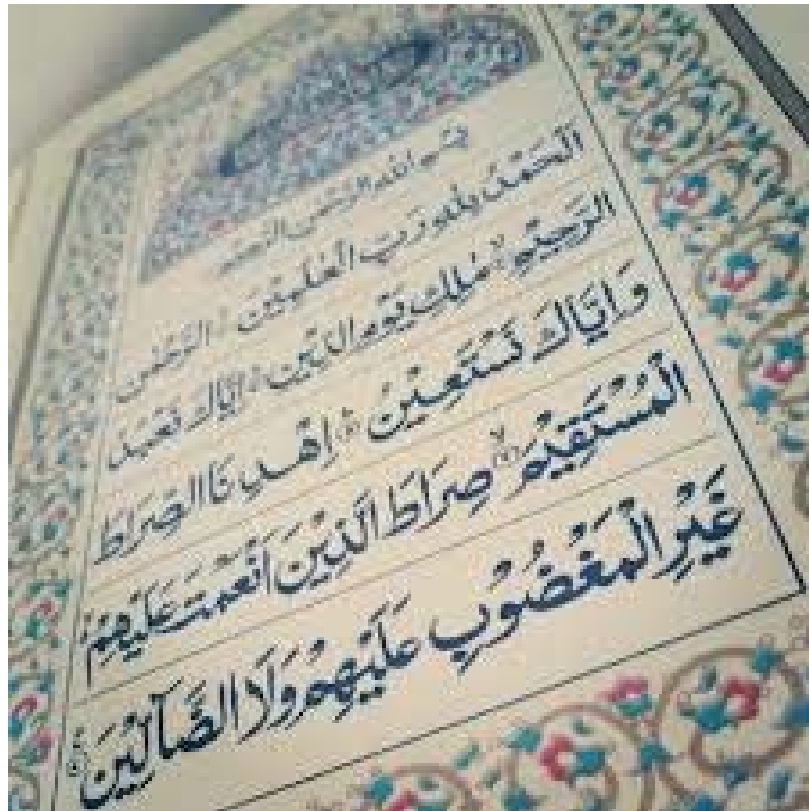 بِسْمِ اللهِ الرَّحْمٰنِ الرَّحِيْمِ
اَلْحَمْدُ لِلّٰهِ رَبِّ الْعٰلَمِيْنَ ۙ الرَّحْمٰنِ
الرَّحِيْمِ ۙ مٰلِكِ يَوْمِ الدِّيْنِ ؕ اِيَّاكَ نَعْبُدُ
وَاِيَّاكَ نَسْتَعِيْنُ ؕ اِهْدِنَا الصِّرَاطَ
الْمُسْتَقِيْمَ ۙ صِرَاطَ الَّذِيْنَ اَنْعَمْتَ عَلَيْهِمْ
غَيْرِ الْمَغْضُوْبِ عَلَيْهِمْ وَلَا الضَّآلِّيْنَ